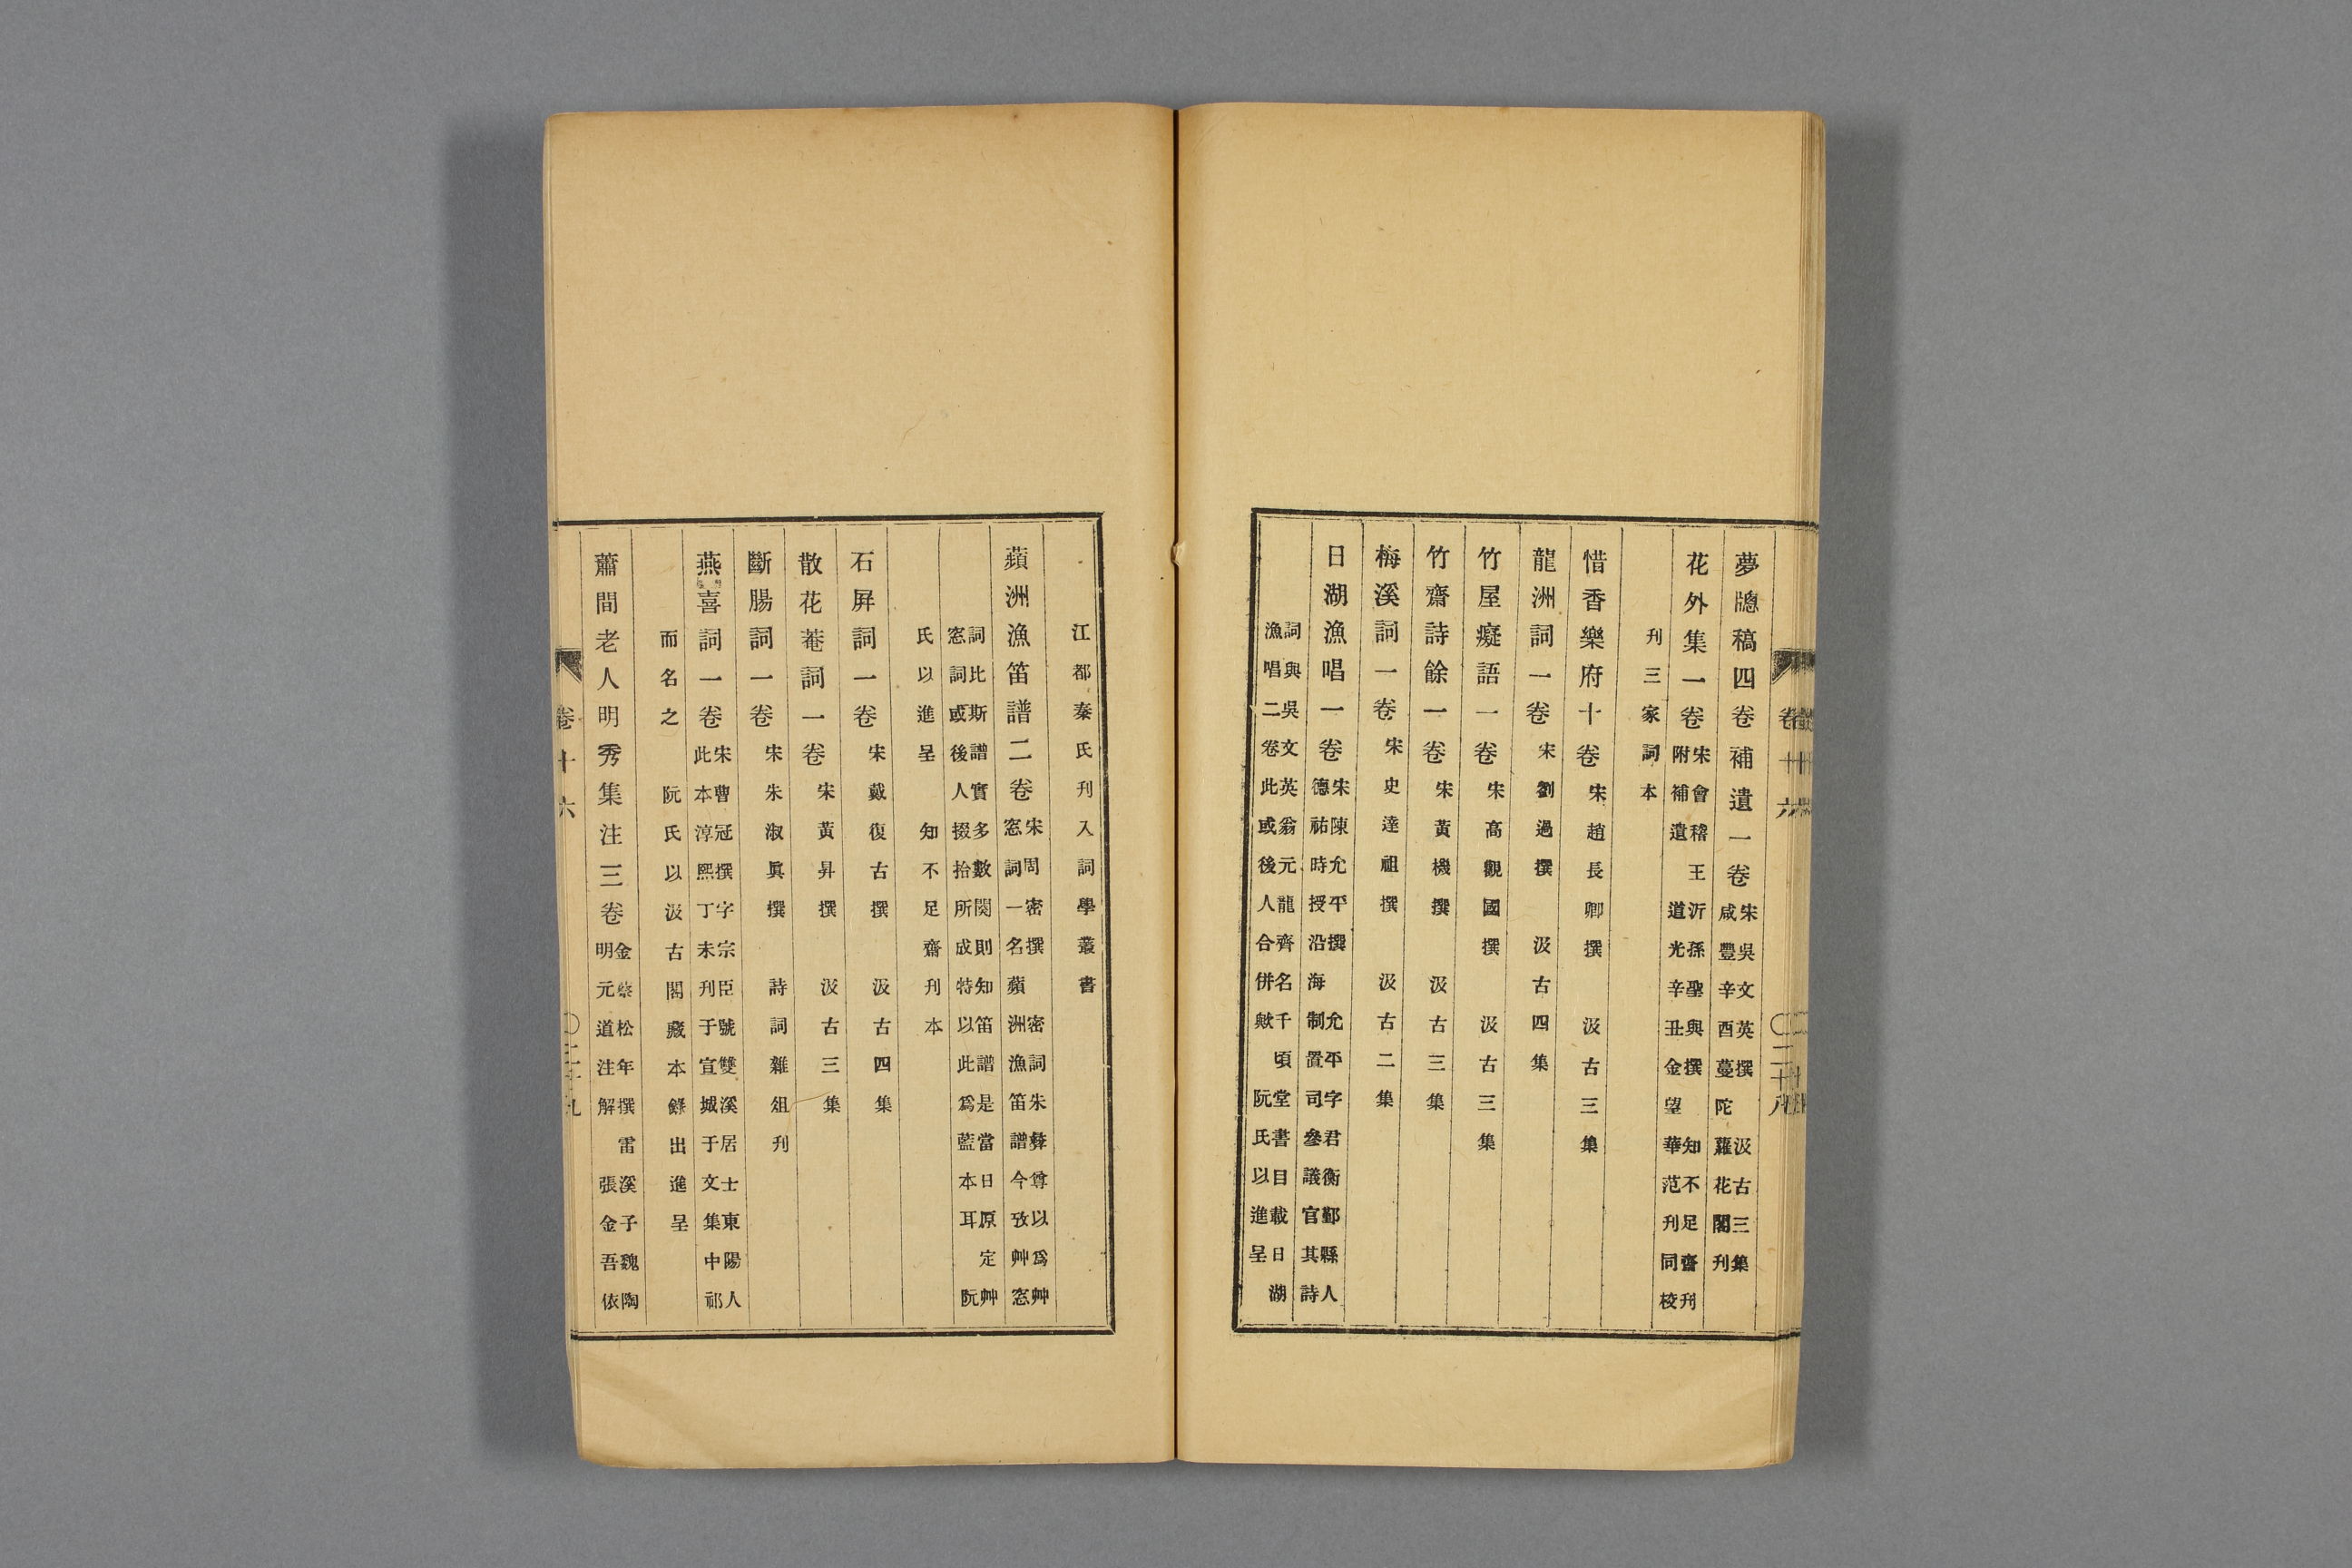 夢牕稿四卷補遺一卷 宋吳文英撰 汲古三集
咸豐辛酉蔓陀蘿花閣刊
花外集一卷 宋會稽王沂孫聖與撰 知不足齋刊
附補遺 道光辛丑金望華范刊同校
刊三家詞本
惜香樂府十卷 宋趙長卿撰 汲古三集
龍洲詞一卷 宋劉過撰 汲古四集
竹屋癡語一卷 宋高觀國撰 汲古三集
竹齋詩餘一卷 宋黃機撰 汲古三集
梅溪詞一卷 宋史達祖撰 汲古二集
日湖漁唱一卷 宋陳允平撰 允平字君衡鄞縣人
德祐時授沿海制置司參議官其詩
詞與吳文英翁元龍齊名千頃堂書目載日湖
漁唱二卷此或後人合併歟 阮氏以進呈
江都秦氏刊入詞學叢書
蘋洲漁笛譜二卷 宋周密撰 密詞朱彝尊以爲艸
窓詞一名蘋洲漁笛譜今攷艸窓
詞比斯譜實多數闋則知笛譜是當日原定艸
窓詞或後人掇拾所成特以此爲藍本耳 阮
氏以進呈 知不足齋刊本
石屏詞一卷 宋戴復古撰 汲古四集
散花菴詞一卷 宋黃昇撰 汲古三集
斷腸詞一卷 宋朱淑眞撰 詩詞雜俎刊
燕喜詞一卷 宋曹冠撰字宗臣號雙溪居士東陽人
此本淳熙丁未刊于宣城于文集中祁
而名之 阮氏以汲古閣藏本錄出進呈
蕭閒老人明秀集注三卷 金蔡松年撰 雷溪子魏陶
明元道注解 張金吾依
卷十六
卷十六